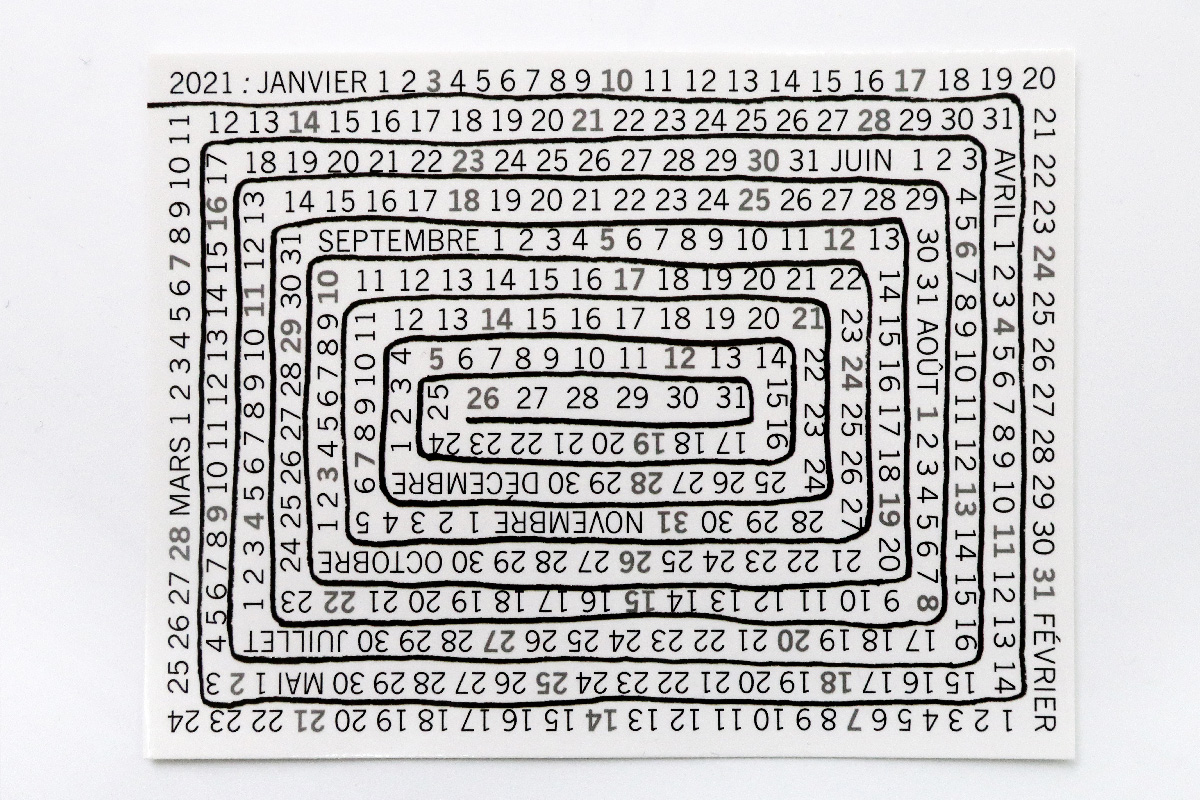 2021 : JANVIER 1 2 3 4 5 6 7 8 9 10 11 12 13 14 15 16 17 18 19 20
21 22 23 24 25 26 27 28 29 30 31 FÉVRIER
1 2 3 4 5 6 7 8 9 10 11 12 13 14 15 16 17 18 19 20 21 22 23 24
25 26 27 28 MARS 1 2 3 4 5 6 7 8 9 10 11
12 13 14 15 16 17 18 19 20 21 22 23 24 25 26 27 28 29 30 31
AVRIL 1 2 3 4 5 6 7 8 9 10 11 12 13 14
15 16 17 18 19 20 21 22 23 24 25 26 27 28 29 30 MAI 1 2 3
4 5 6 7 8 9 10 11 12 13 14 15 16 17
18 19 20 21 22 23 24 25 26 27 28 29 30 31 JUIN 1 2 3
4 5 6 7 8 9 10 11 12 13 14 15 16
17 18 19 20 21 22 23 24 25 26 27 28 29 30 JUILLET
1 2 3 4 5 6 7 8 9 10 11 12 13
14 15 16 17 18 19 20 21 22 23 24 25 26 27 28 29
30 31 AOÛT 1 2 3 4 5 6 7 8
9 10 11 12 13 14 15 16 17 18 19 20 21 22 23
24 25 26 27 28 29 30 31
SEPTEMBRE 1 2 3 4 5 6 7 8 9 10 11 12 13
14 15 16 17 18 19 20
21 22 23 24 25 26 27 28 29 30 OCTOBRE
1 2 3 4 5 6 7 8 9 10
11 12 13 14 15 16 17 18 19 20 21 22
23 24 25 26 27
28 29 30 31 NOVEMBRE 1 2 3 4 5
6 7 8 9 10 11
12 13 14 15 16 17 18 19 20 21
22 23 24
25 26 27 28 29 30 DÉCEMBRE
1 2 3 4
5 6 7 8 9 10 11 12 13 14
15 16
17 18 19 20 21 22 23 24
25
26 27 28 29 30 31